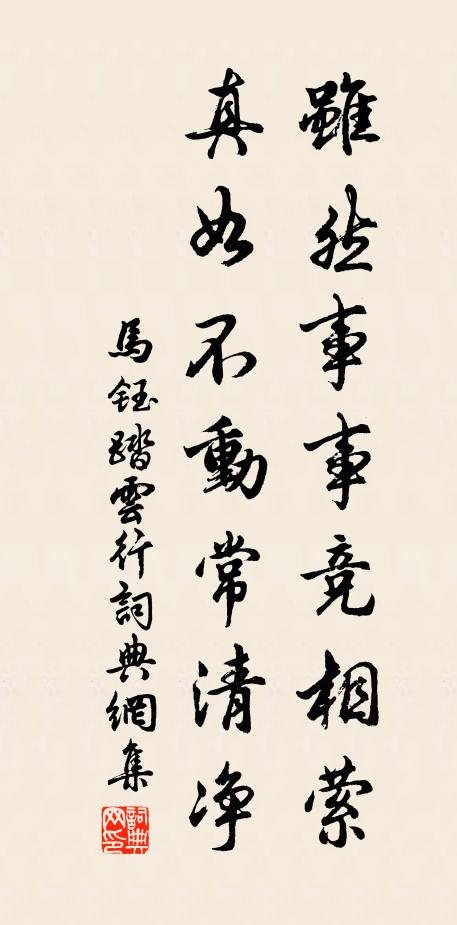 雖然事事竞相縈
真如不動常清净
馬鈺踏雲行詞典網集
詞典网印